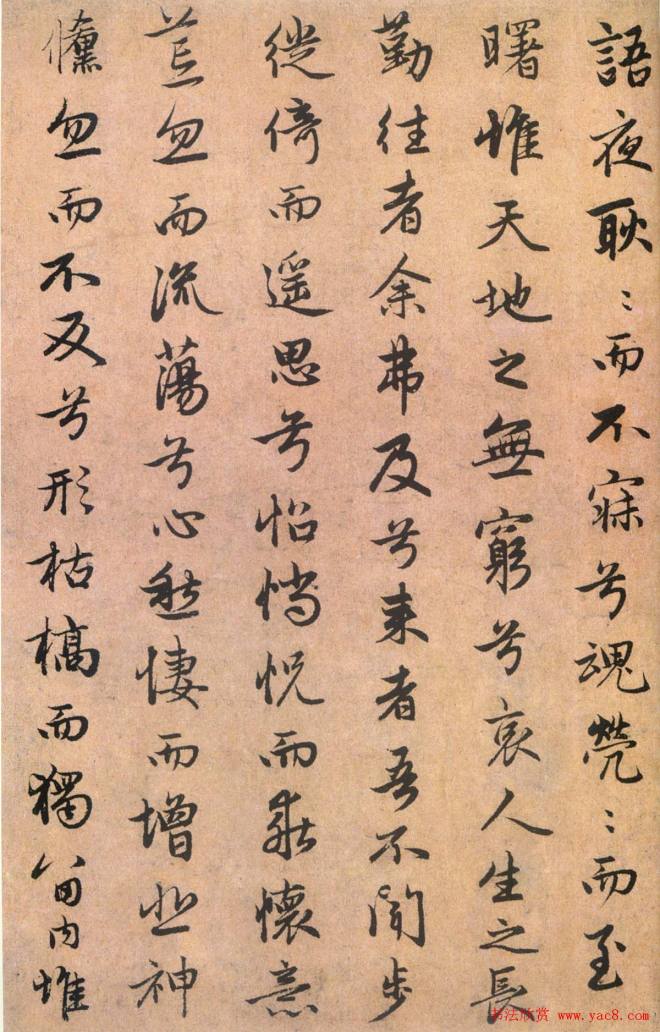 語夜耿〻而不寐兮魂煢〻而至
曙惟天地之無窮兮哀人生之長
勤往者余弗及兮来者吾不聞步
徙倚而遥思兮怊惝怳而乖懷意
荒忽而流蕩兮心愁悽而增悲神
儵忽而不反兮形枯槁而獨留内惟
书法欣赏 www.yac8.com